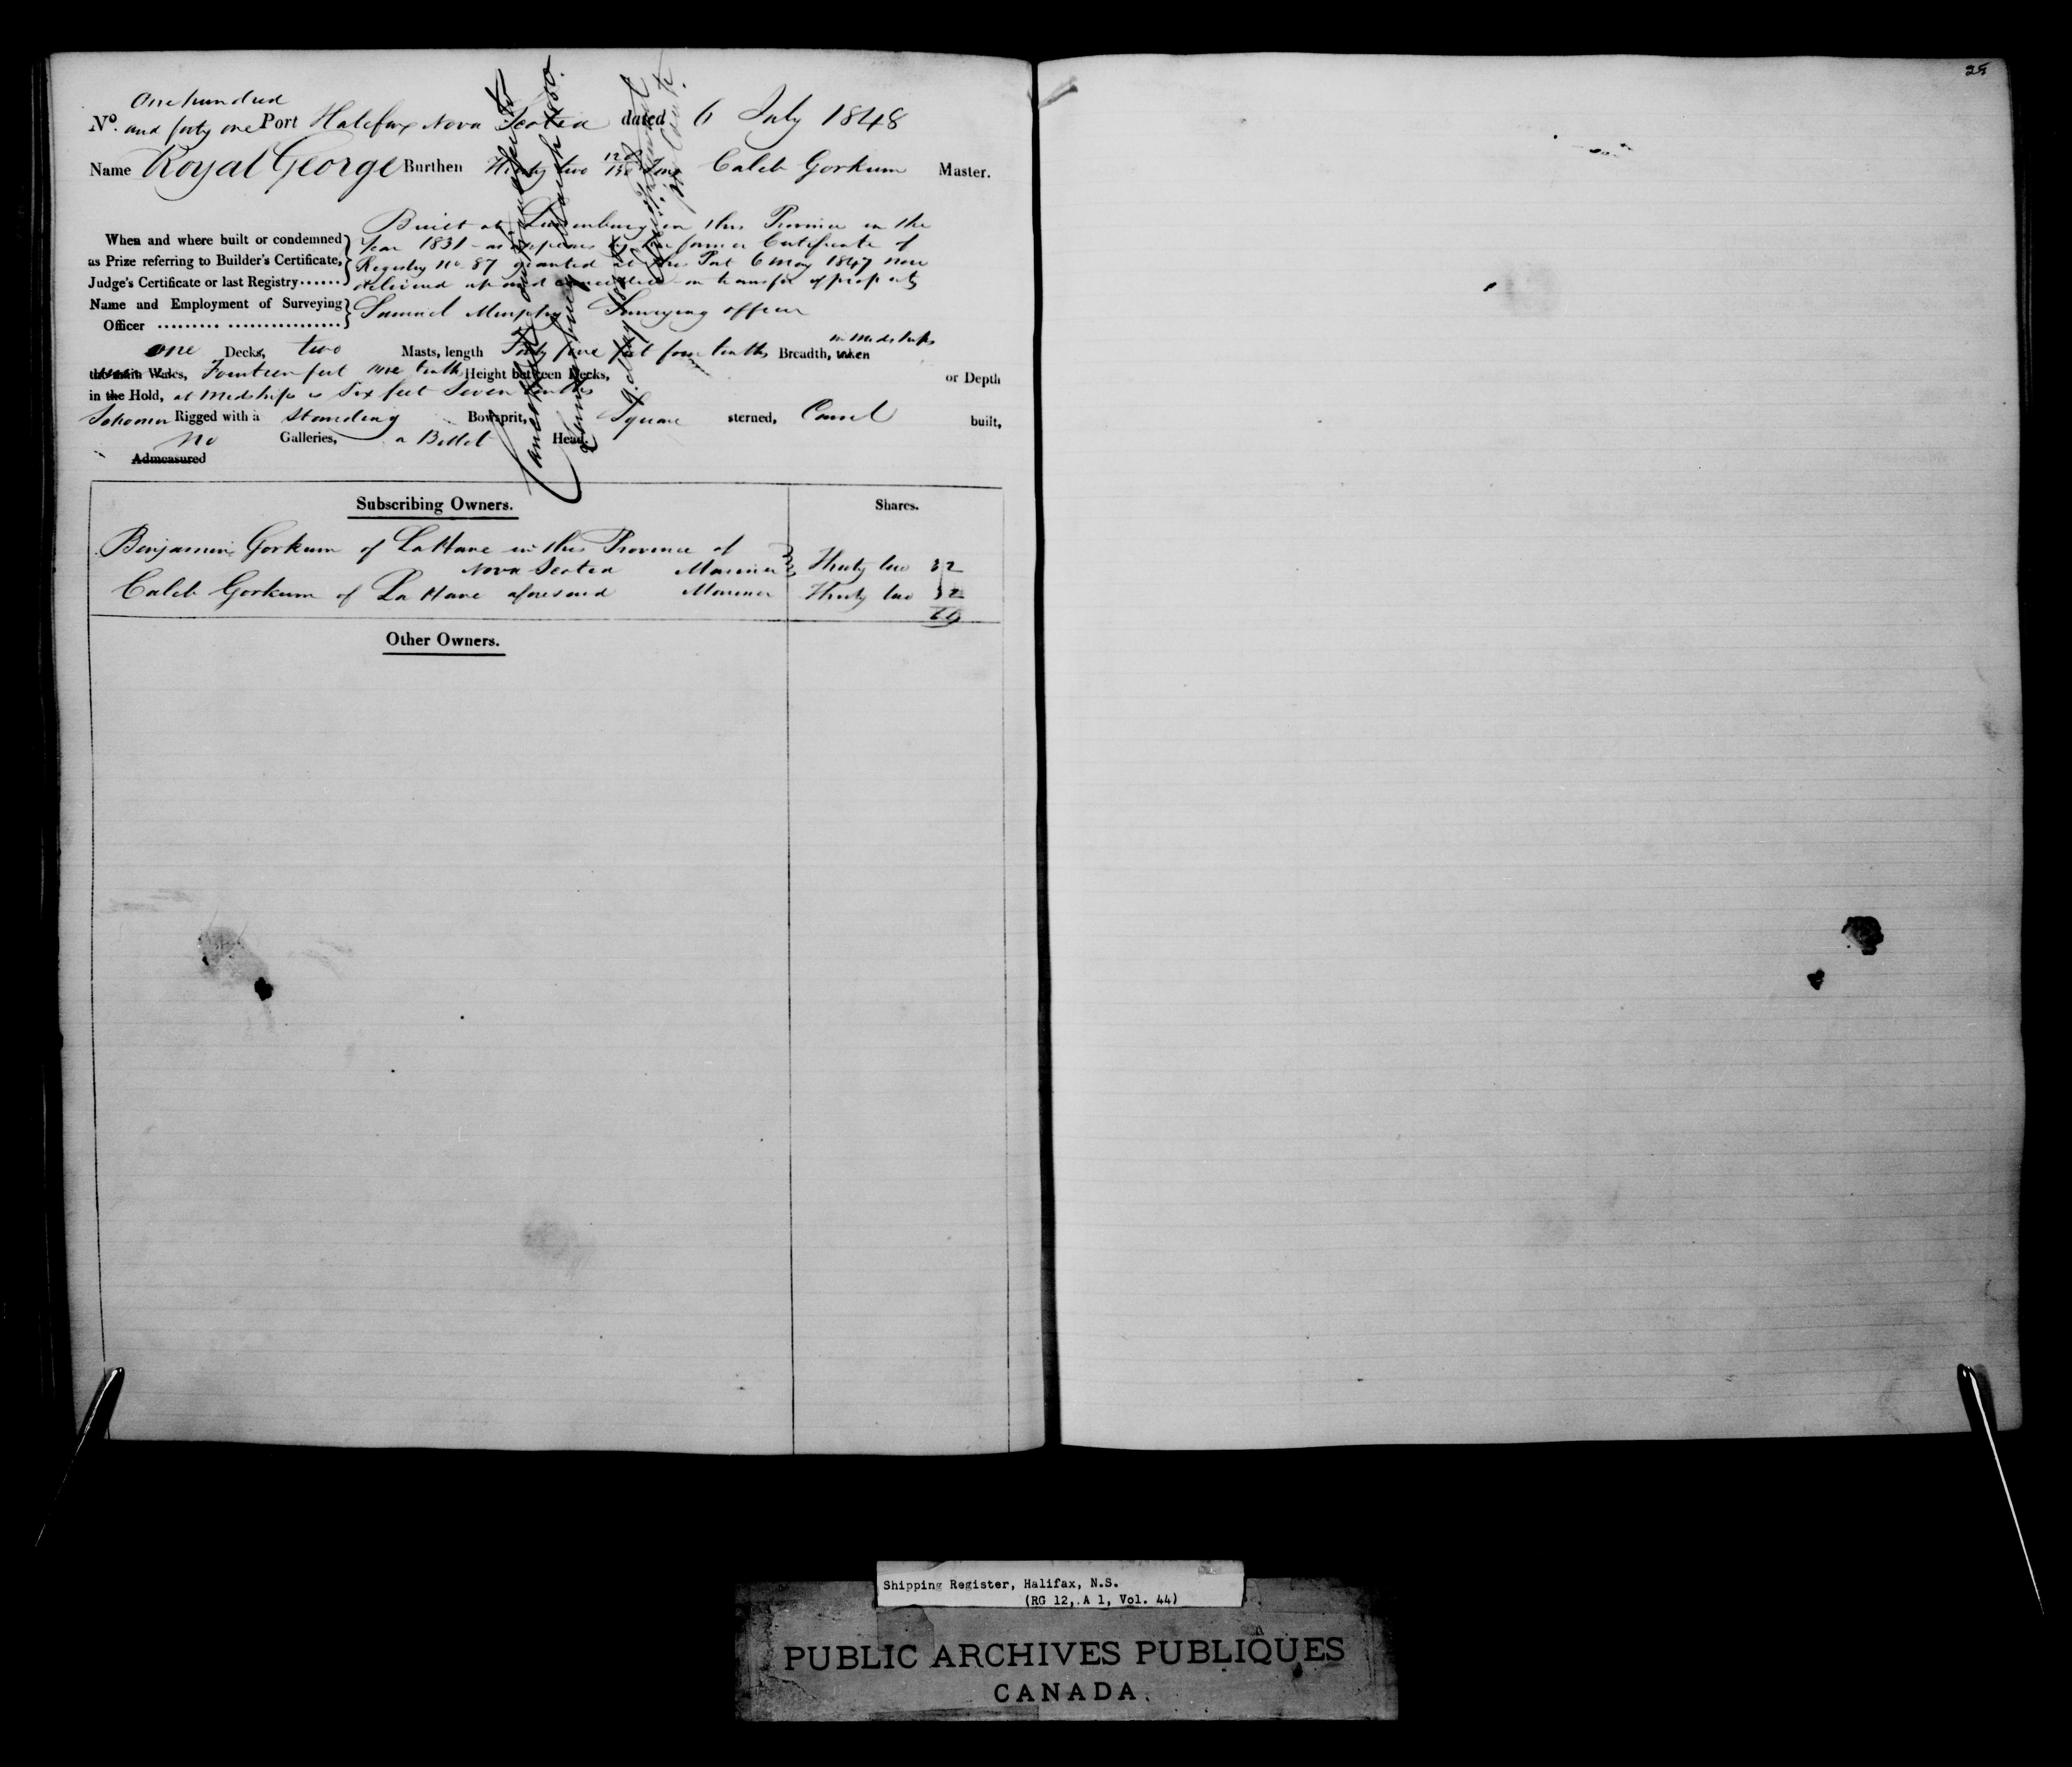 One hundred
No. and forty one Port Halifax Nova Scotia dated 6 July 1848
Name Royal George Burthen two Caleb Gorkum Master.
Built at Lunenburg in this Province in the
When and where built or condemned Year 1831 as appears by the former Certificate of
as Prize referring to Builder's Certificate, Registry No 87 granted at this Port 6 May 1847 now
Judge's Certificate or last Registry...... delivered up and cancelled on transfer of property
Name and Employment of Surveying Samuel Murphy Surveying officer
Officer .......... .................
one Decks, two Masts, length Forty five feet four tenths Breadth, taken
in Midships
the main Wales, Fourteen feet nine tenths Height between Decks, or Depth
in the Hold, at Midships is Six feet Seven tenths
Schooner Rigged with a Standing Bowsprit, Square sterned, Carvel built,
no Galleries, a Billet Head.
Admeasured
Subscribing Owners. Shares.
Benjamin Gorkum of LaHave in this Province of
Nova Scotia Mariner Thirty two 32
Caleb Gorkum of La Have aforesaid Mariner Thirty two 32
64
Other Owners.
Shipping Register, Halifax, N.S.
(RG 12, A 1, Vol. 44)
PUBLIC ARCHIVES PUBLIQUES
CANADA